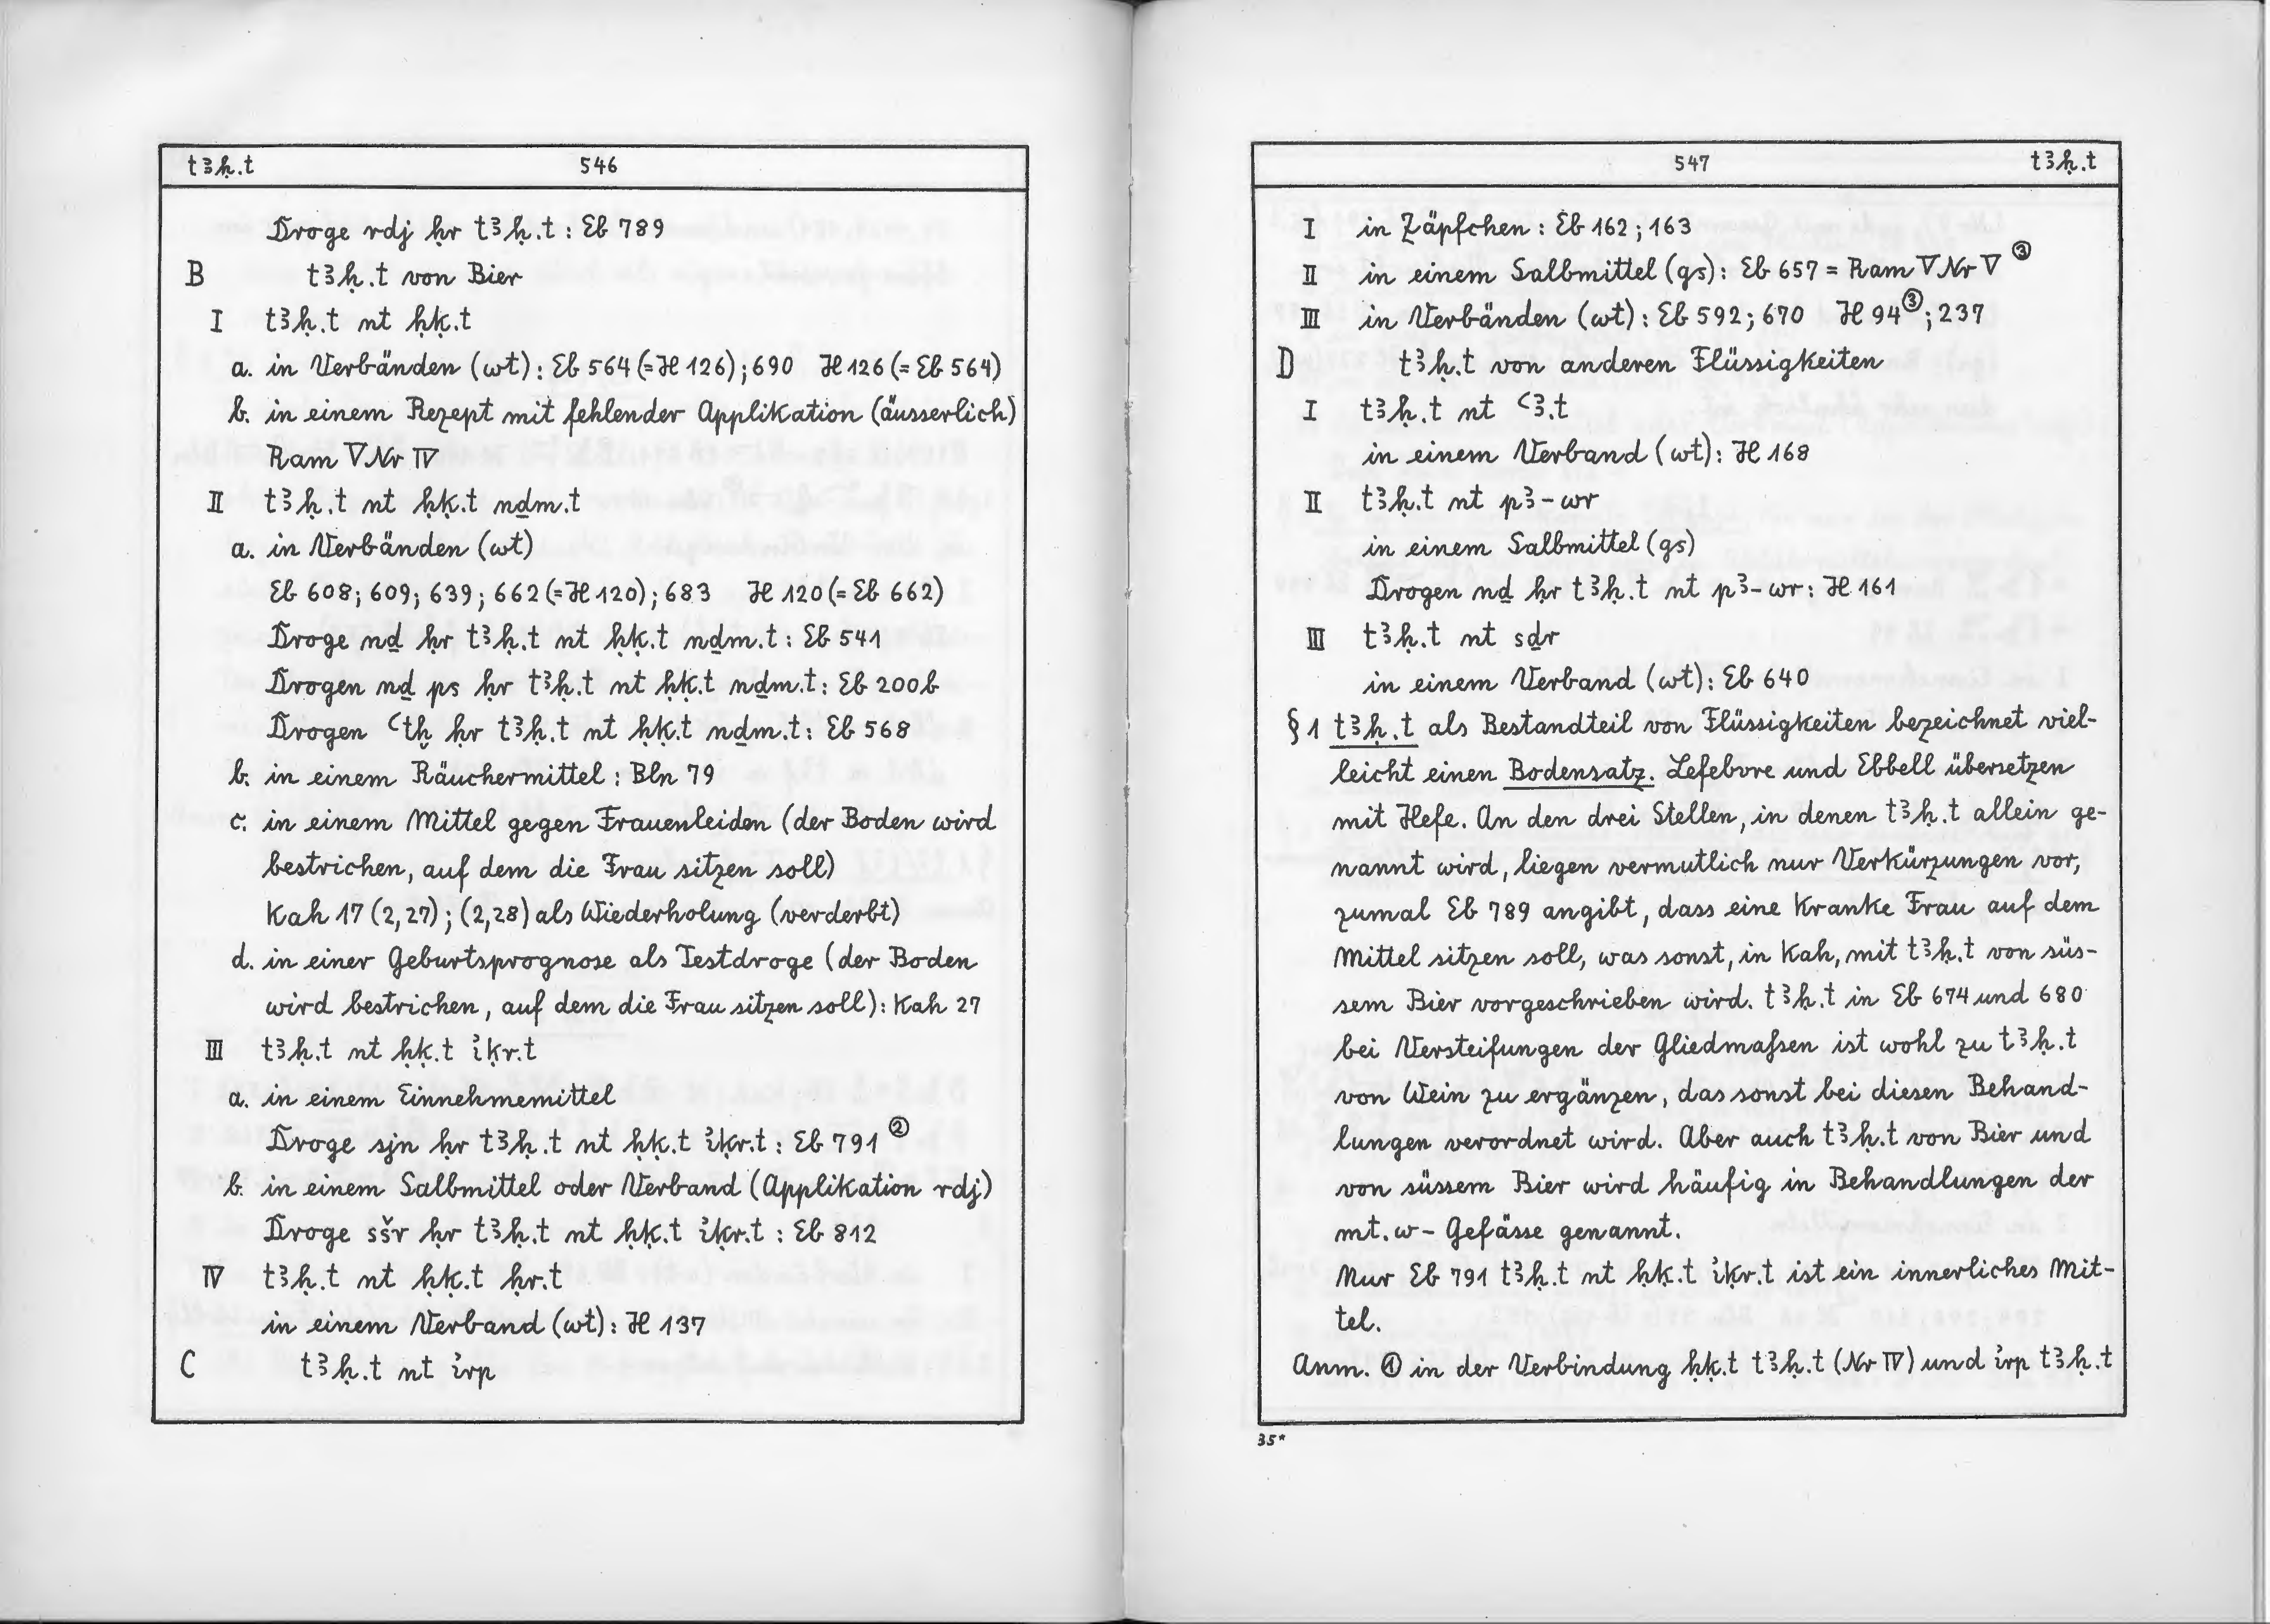 tꜣḥ.t 546
Droge rdj ḥr tꜣḥ.t : Eb 789
B tꜣḥ.t von Bier
I tꜣḥ.t nt ḥḳ.t
a. in Verbänden (wt) : Eb 564 (= H 126) ; 690 H 126 (= Eb 564)
b. in einem Rezept mit fehlender Applikation (äusserlich)
Ram V Nr IV
II tꜣḥ.t nt ḥḳ.t nḏm.t
a. in Verbänden (wt)
Eb 608 ; 609 ; 639 ; 662 (= H 120) ; 683 H 120 (= Eb 662)
Droge nḏ ḥr tꜣḥ.t nt ḥḳ.t nḏm.t : Eb 541
Drogen nḏ ps ḥr tꜣḥ.t nt ḥḳ.t nḏm.t : Eb 200b
Drogen ꜥtḫ ḥr tꜣḥ.t nt ḥḳ.t nḏm.t : Eb 568
b. in einem Räuchermittel : Bln 79
c. in einem Mittel gegen Frauenleiden (der Boden wird
bestrichen, auf dem die Frau sitzen soll)
Kah 17 (2,27) ; (2,28) als Wiederholung (verderbt)
d. in einer Geburtsprognose als Testdroge (der Boden
wird bestrichen, auf dem die Frau sitzen soll) : Kah 27
III tꜣḥ.t nt ḥḳ.t i͗ḳr.t
a. in einem Einnehmemittel
Droge sjn ḥr tꜣḥ.t nt ḥḳ.t i͗ḳr.t : Eb 791 ②
b. in einem Salbmittel oder Verband (Applikation rdj)
Droge sšr ḥr tꜣḥ.t nt ḥḳ.t i͗ḳr.t : Eb 812
IV tꜣḥ.t nt ḥḳ.t ḥr.t
in einem Verband (wt) : H 137
C tꜣḥ.t nt i͗rp
547 tꜣḥ.t
I in Zäpfchen : Eb 162 ; 163
II in einem Salbmittel (gs) : Eb 657 = Ram V Nr V ③
III in Verbänden (wt) : Eb 592 ; 670 H 94 ③ ; 237
D tꜣḥ.t von anderen Flüssigkeiten
I tꜣḥ.t nt ꜥꜣ.t
in einem Verband (wt) : H 168
II tꜣḥ.t nt pꜣ-wr
in einem Salbmittel (gs)
Drogen nḏ ḥr tꜣḥ.t nt pꜣ-wr : H 161
III tꜣḥ.t nt sḏr
in einem Verband (wt) : Eb 640
§ 1 tꜣḥ.t als Bestandteil von Flüssigkeiten bezeichnet viel-
leicht einen Bodensatz. Lefebvre und Ebbell übersetzen
mit Hefe. An den drei Stellen, in denen tꜣḥ.t allein ge-
nannt wird, liegen vermutlich nur Verkürzungen vor,
zumal Eb 789 angibt, dass eine Kranke Frau auf dem
Mittel sitzen soll, was sonst, in Kah, mit tꜣḥ.t von süs-
sem Bier vorgeschrieben wird. tꜣḥ.t in Eb 674 und 680
bei Versteifungen der Gliedmaſsen ist wohl zu tꜣḥ.t
von Wein zu ergänzen, das sonst bei diesen Behand-
lungen verordnet wird. Aber auch tꜣḥ.t von Bier und
von süssem Bier wird häufig in Behandlungen der
mt.w - Gefässe genannt.
Nur Eb 791 tꜣḥ.t nt ḥḳ.t i͗ḳr.t ist ein innerliches Mit-
tel.
Anm. ① in der Verbindung ḥḳ.t tꜣḥ.t (Nr IV) und i͗rp tꜣḥ.t
35*